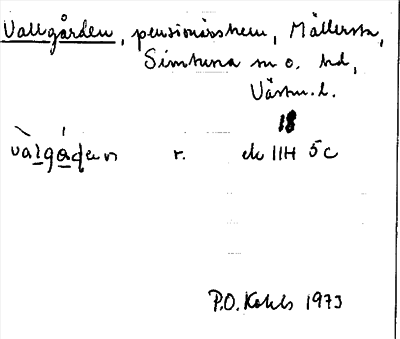 Vallgården, pensionärshem, Mällersta,
Simtuna sn o. hd,
Västm.l.
18
valgåḍen r. ek 11H 5c
P.O. Kohls 1973